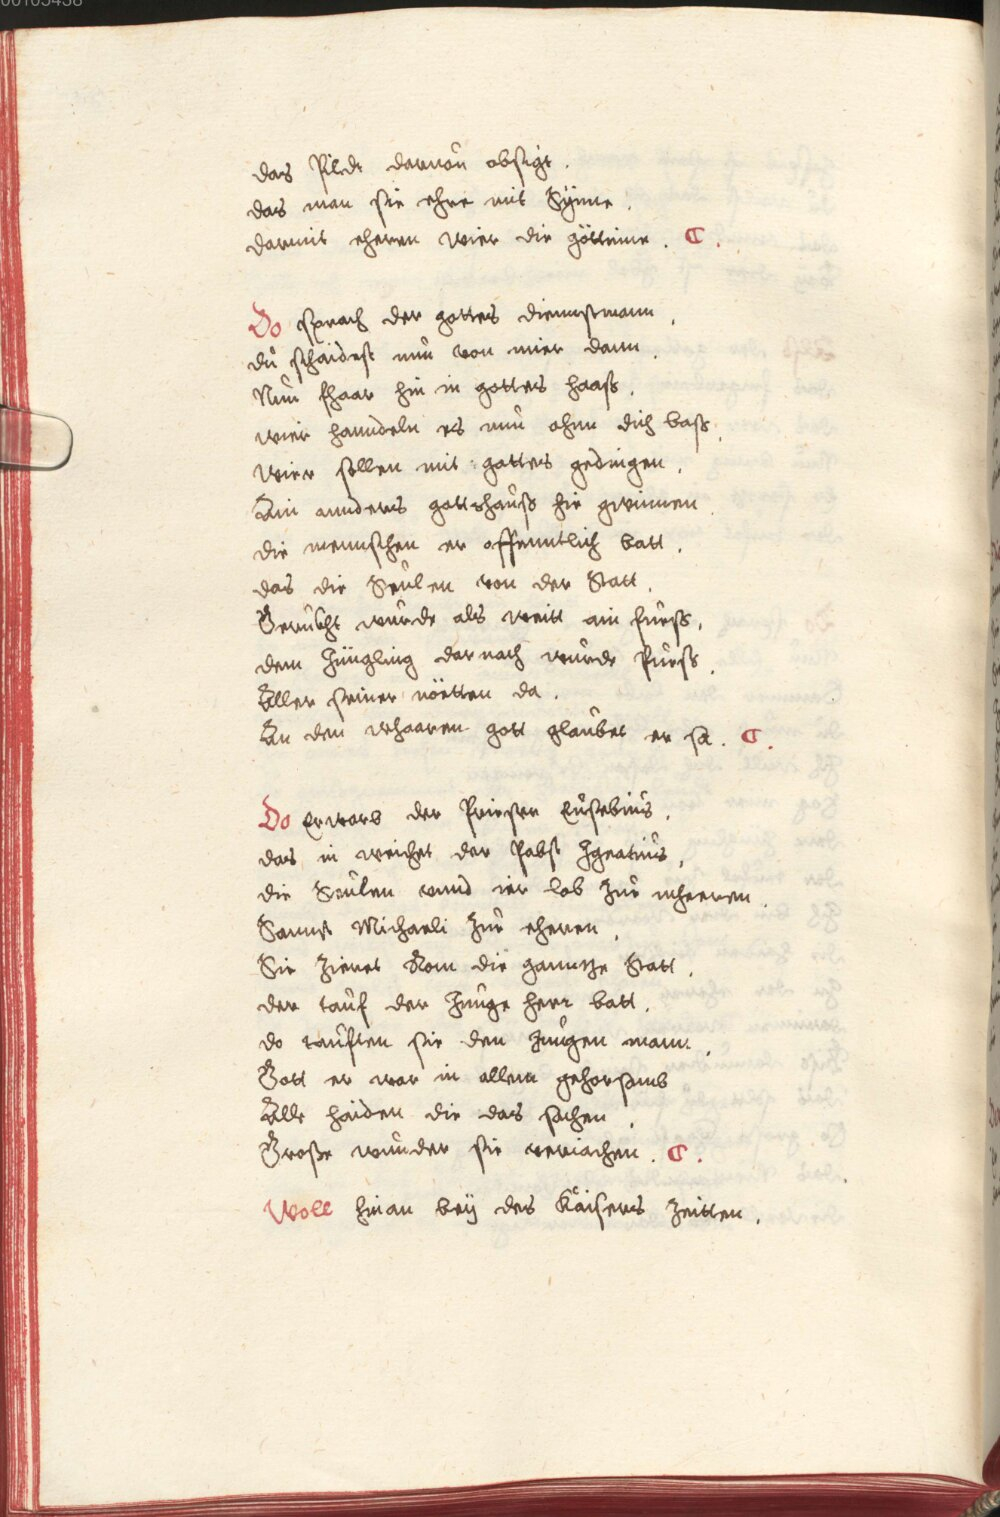 das Pildt darvou obsigt.
das man sie ehre mit Synne.
darmit eheren wier die göttinne. C.
Do sprach der gottes diennstmann,
du schaidest nun von mier dann.
Nun fhaar hin in gottes haaß.
wier hanndeln es nun ohnn dich baß,
wier sollen mit gottes gedingen.
Ain annders gottshauß hie gwinnen.
die mennschen er offenntlich batt.
das die Seulen von der Statt.
Geruckht wurde als weitt ain fuess,
dem Jüngling darnach wurde Puess.
Aller seiner nöetten da.
An den whaaren gott glaubet er sa. C.
Do Erwarb der Priester Eusebius.
das in weichet der Pabst Ignatius,
die Seulen vnnd ier lob zur mheeren.
Sannct Michaeli zur eheren,
Sie zieret Rom die ganntze Statt.
der tauf der Junge herr batt.
do taufften sie den Jungen mann.
Gott er war in allem gehorsamb
Alle haiden die das sachen,
Große wunder sie veriachen. C.
Woll hinan bey des Kaisers zeitten.